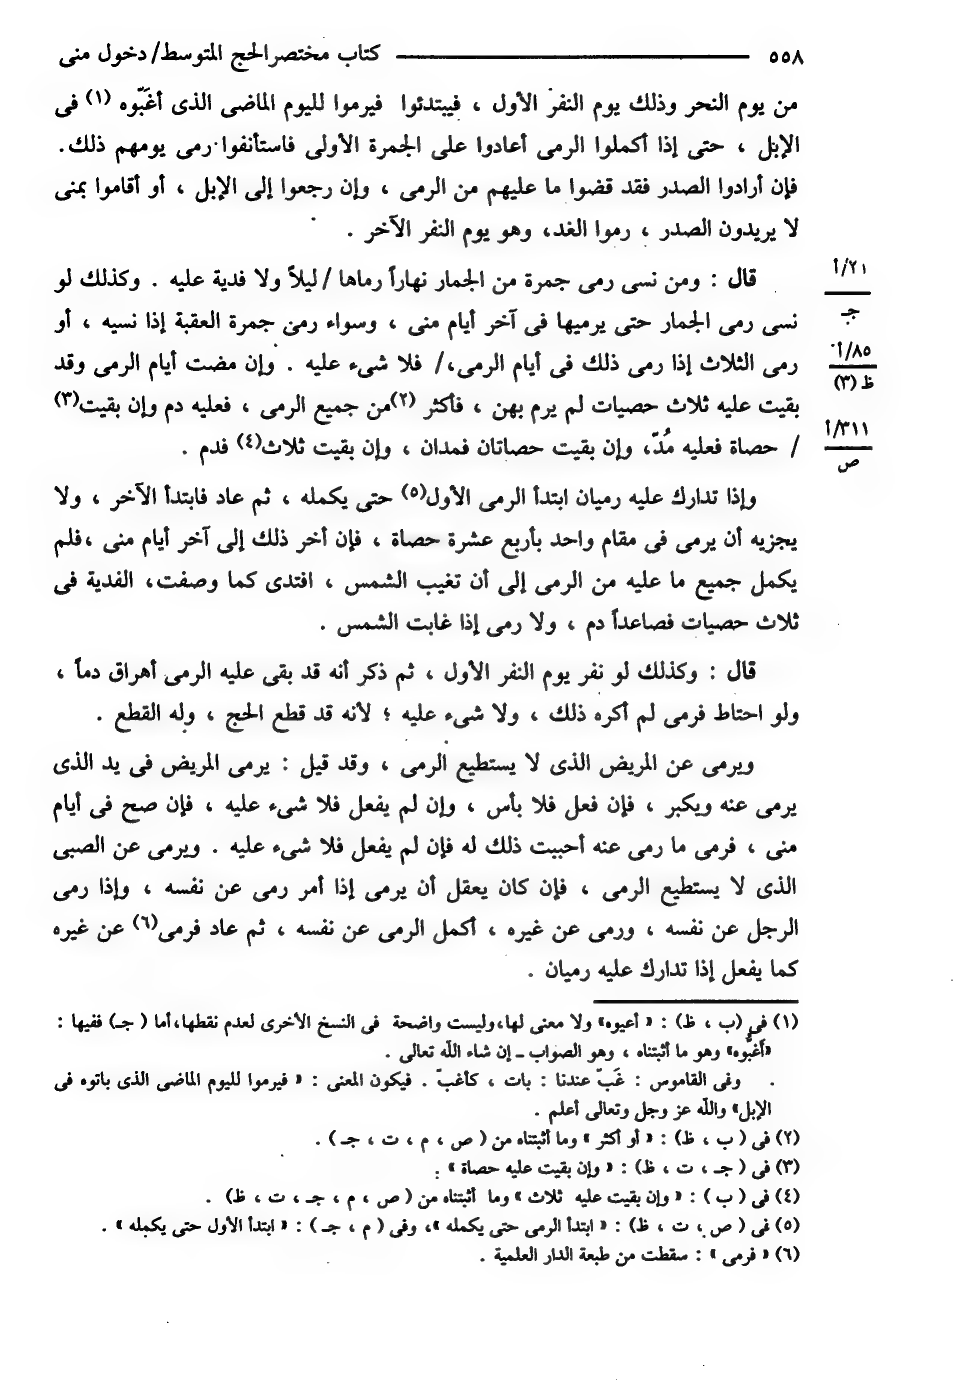 ٥٥٨ كتاب مختصر الحج المتوسط/ دخول منى
من يوم النحر وذلك يوم النفر الأول ، فيبتدئوا فيرموا لليوم الماضى الذى أغَبّوه (١) فى
الإبل ، حتى إذا أكملوا الرمى أعادوا على الجمرة الأولى فاستأنفوا رمى يومهم ذلك.
فإن أرادوا الصدر فقد قضوا ما عليهم من الرمى ، وإن رجعوا إلى الإبل ، أو أقاموا بمنى
لا يريدون الصدر ، رموا الغد، وهو يوم النفر الآخر .
قال : ومن نسى رمى جمرة من الجمار نهاراً رماها / ليلاً ولا فدية عليه . وكذلك لو
٢١/أ
جـ
نسى رمى الجمار حتى يرميها فى آخر أيام منى ، وسواء رمى جمرة العقبة إذا نسيه ، أو
رمى الثلاث إذا رمى ذلك فى أيام الرمى،/ فلا شىء عليه . وإن مضت أيام الرمى وقد
٨٥/أ
ظ (٣)
بقيت عليه ثلاث حصيات لم يرم بهن ، فأكثر (٢)من جميع الرمى ، فعليه دم وإن بقيت(٣)
/ حصاة فعليه مُدّ، وإن بقيت حصاتان فمدان ، وإن بقيت ثلاث(٤) فدم .
٣١١/أ
ص
وإذا تدارك عليه رميان ابتدأ الرمى الأول(٥) حتى يكمله ، ثم عاد فابتدأ الآخر ، ولا
يجزيه أن يرمى فى مقام واحد بأربع عشرة حصاة ، فإن أخر ذلك إلى آخر أيام منى ،فلم
يكمل جميع ما عليه من الرمى إلى أن تغيب الشمس ، افتدى كما وصفت، الفدية فى
ثلاث حصيات فصاعداً دم ، ولا رمى إذا غابت الشمس .
قال : وكذلك لو نفر يوم النفر الأول ، ثم ذكر أنه قد بقى عليه الرمى أهراق دماً ،
ولو احتاط فرمى لم أكره ذلك ، ولا شىء عليه ؛ لأنه قد قطع الحج ، وله القطع .
ويرمى عن المريض الذى لا يستطيع الرمى ، وقد قيل : يرمى المريض فى يد الذى
يرمى عنه ويكبر ، فإن فعل فلا بأس ، وإن لم يفعل فلا شىء عليه ، فإن صح فى أيام
منى ، فرمى ما رمى عنه أحببت ذلك له فإن لم يفعل فلا شىء عليه . ويرمى عن الصبى
الذى لا يستطيع الرمى ، فإن كان يعقل أن يرمى إذا أمر رمى عن نفسه ، وإذا رمى
الرجل عن نفسه ، ورمى عن غيره ، أكمل الرمى عن نفسه ، ثم عاد فرمى(٦) عن غيره
كما يفعل إذا تدارك عليه رميان .
(١) فى (ب ، ظ) : « أعيوه» ولا معنى لها،وليست واضحة فى النسخ الأخرى لعدم نقطها،أما ( جـ) ففيها :
«أَغَبُّوه» وهو ما أثبتناه ، وهو الصواب ــ إن شاء اللّه تعالى .
وفى القاموس : غَبّ عندنا : بات ، كأغبّ . فيكون المعنى : « فيرموا لليوم الماضى الذى باتوه فى
الإبل» واللّه عز وجل وتعالى أعلم .
(٢) فى ( ب ، ظ) : « أو أكثر » وما أثبتناه من ( ص ، م ، ت ، جـ ) .
(٣) فى ( جـ ، ت ، ظ) : « وإن بقيت عليه حصاة » .
(٤) فى ( ب ) : « وإن بقيت عليه ثلاث » وما أثبتناه من ( ص ، م ، جـ ، ت ، ظ) .
(٥) فى ( ص ، ت ، ظ) : « ابتدأ الرمى حتى يكمله »، وفى ( م ، جـ ) : « ابتدأ الأول حتى يكمله » .
(٦) « فرمى » : سقطت من طبعة الدار العلمية .